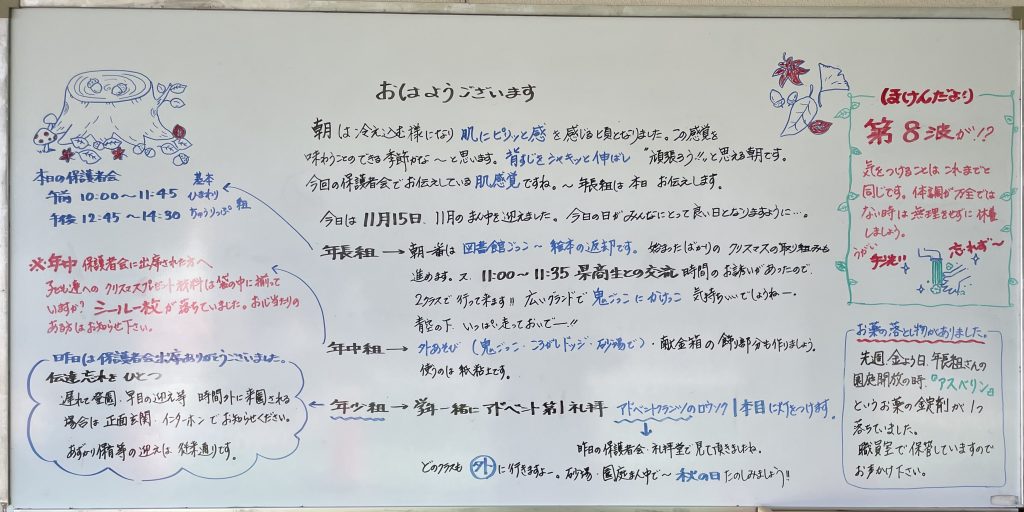 おはようございます
朝は冷え込む様になり 肌にピリッと感 を感じる頃となりました。この感覚を
味わうことのできる季節かな〜と思います。背すじをシャキッと伸ばし "頑張ろう!!"と思える朝です。
今回の保護者会でお伝えしている 肌感覚ですね。〜 年長組は本日 お伝えします。
今日は 11月15日. 11月のまん中を迎えました。今日の日がみんなにとって良い日となりますように…。
年長組 → 朝一番は 図書館ごっこ〜 絵本の返却です。 始まったばかりの クリスマスの取り組みも
進めます。又、11:00〜11:35 昴高生との交流 時間のお誘いがあったので、
2クラスで行って来ます!! 広いグランドで 鬼ごっこにかけっこ 気持ちいいでしょうねー.
青空の下 いっぱい走っておいでー!!
年中組 → 外あそび (鬼ごっこ・ころがしドッジ・砂場で)・献金箱の飾り部分も作りましょう。
使うのは紙粘土です。
年少組 → 学年一緒に アドベント第1礼拝 アドベントクランツのロウソク 1本目に灯をつけます。
昨日の保護者会・礼拝堂で見て頂きましたね。
どのクラスも 外 に行きますよー。砂場・園庭まん中で〜 秋の日 たのしみましょう!!
本日の保護者会
午前 10:00〜11:45 基本 ひまわり
午後 12:45〜14:30 ちゅうりっぷ 組
※年中 保護者会に出席された方へ
子ども達への クリスマスプレゼント 材料は袋の中に揃って
いますか? シール一枚が落ちていました。お心当たりの
ある方はお知らせ下さい。
昨日は保護者会出席ありがとうございました。
伝達忘れを ひとつ
遅れて登園・早目の迎え等 時間外に来園される
場合は 正面玄関・インターホンでお知らせください。
あずかり保育等の迎えは 従来通りです。
ほけんだより
第8波が!?
気をつけることは これまでと
同じです。体調が万全では
ない時は無理をせずに 休養
しましょう。
うがい 手洗い 忘れず〜
お薬の落とし物がありました。
先週 金よう日、年長組さんの
園庭開放の時、『アスベリン』
というお薬の錠剤が1つ
落ちていました。
職員室で保管していますので
お声かけ下さい。